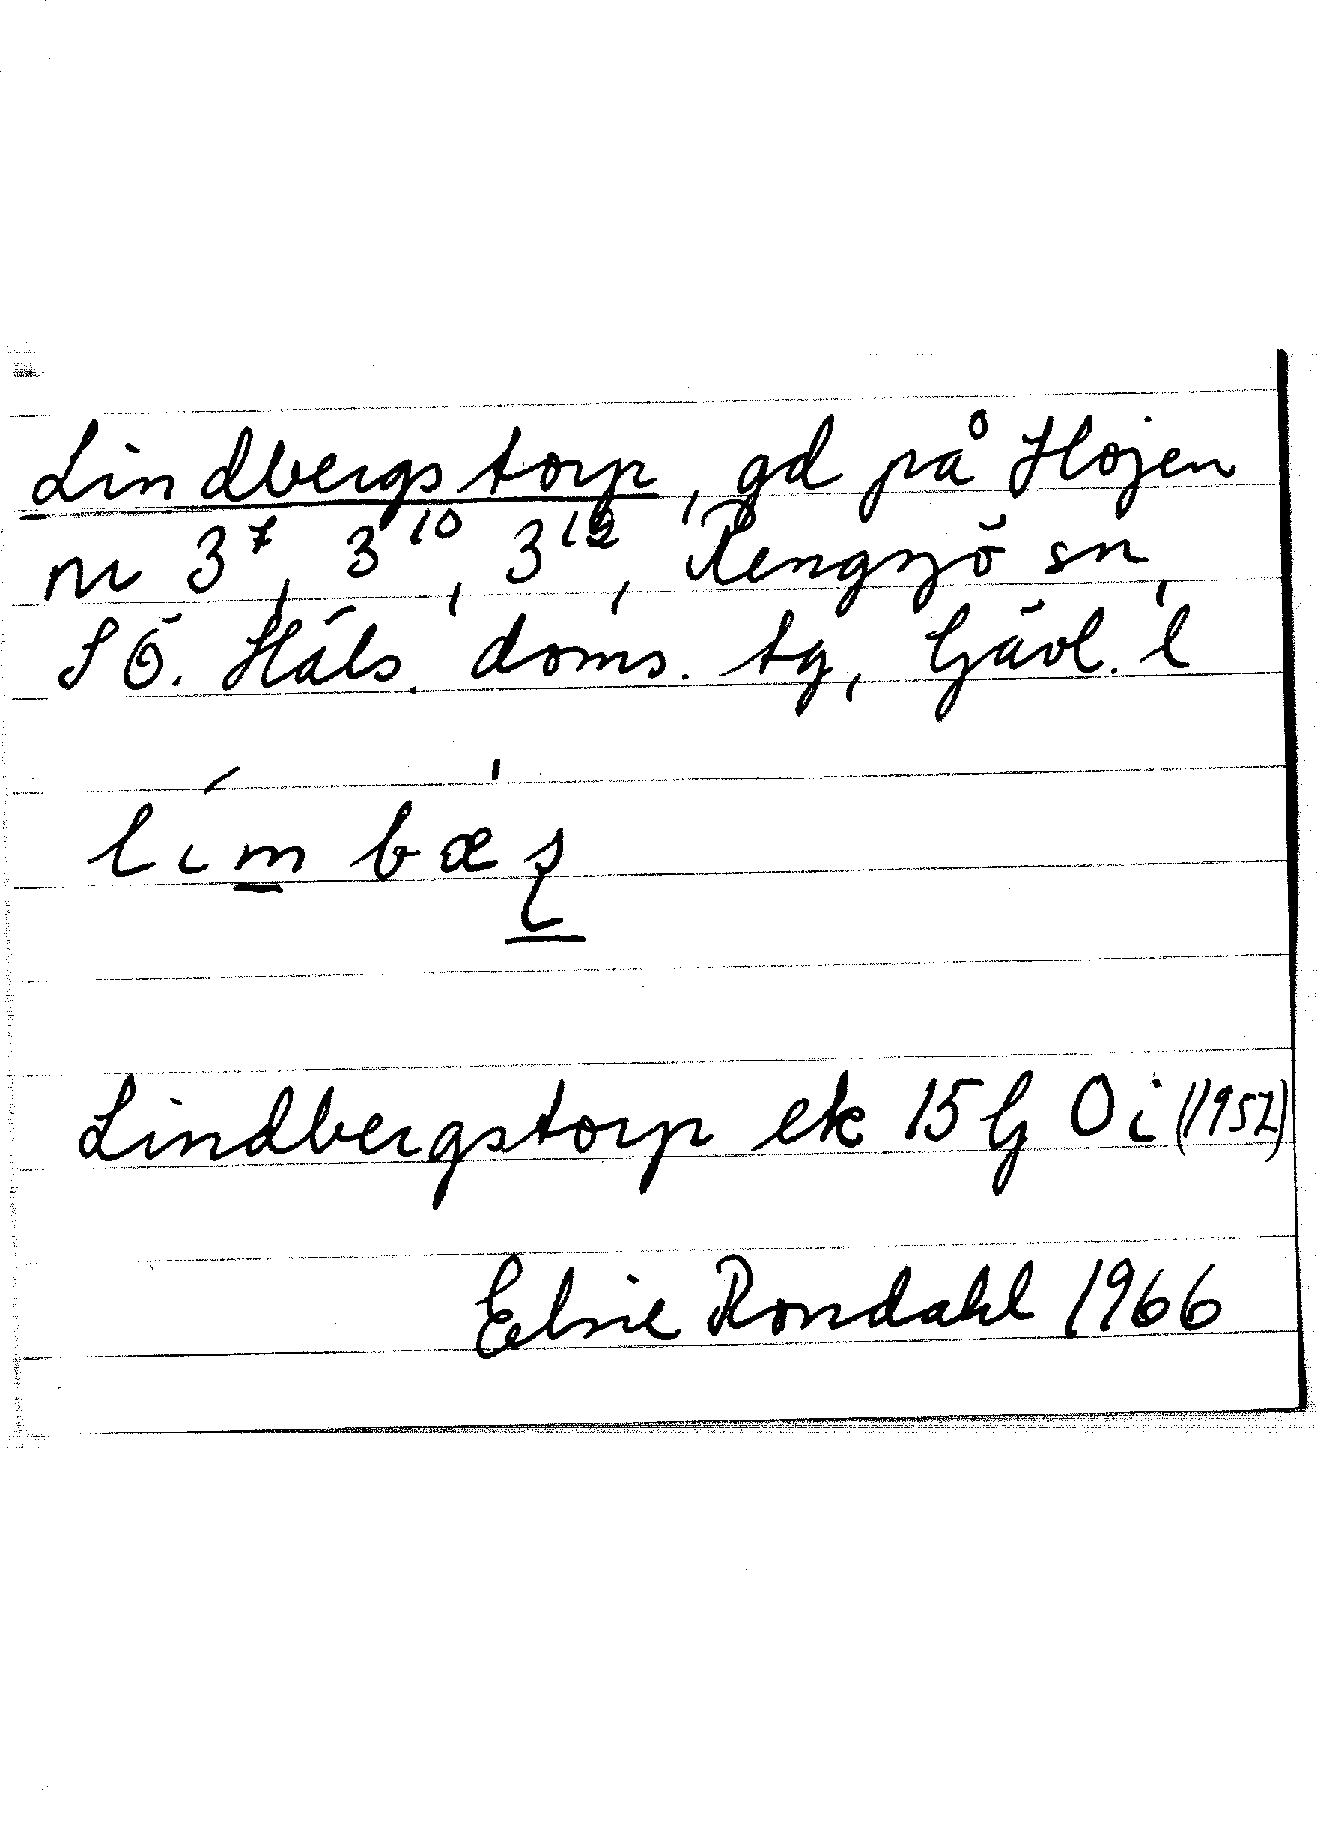 Lindbergstorp, gd på Höjen
nr 3⁷, 3¹⁰, 3¹², Rengsjö sn,
S Ö. Häls. doms. tg, Gävl. l
Lindbergstorp ek 15 G 0 i (1957)
Elsie Rondahl 1966